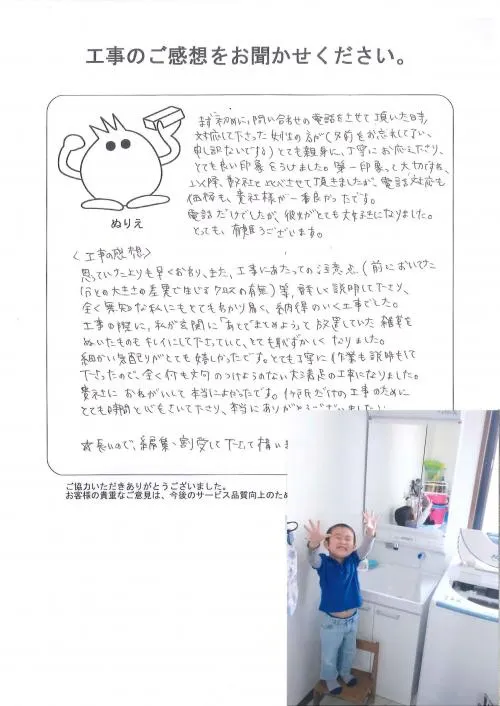 工事のご感想をお聞かせください。
まず初めに、問い合わせの電話をさせて頂いた時、
対応して下さった女性の方が(名前をお忘れしてしまい、
申し訳ないです)とても親身に、丁寧にお応え下さり、
とても良い印象をうけました。第一印象って大切ですね。
数社と比べさせて頂きましたが、電話対応も
価格も、貴社様が一番良かったです。
電話だけでしたが、彼女がとても大好きになりました。
とっても、有難うございます。
ぬりえ
〈工事の感想〉
思っていたよりも早くおわり、また、工事にあたっての注意点(前においてた
分との大きさの差異で生じるクロスの有無)等、詳しく説明して下さり、
全く無知な私にもとてもわかり易く、納得のいく工事でした。
工事の際に、私が玄関に「あとでまとめよう」って放置していた雑草を
ぬいたものもキレイにして下さっていて、とても恥ずかしくなりました。
細かい気配りがとても嬉しかったです。とても丁寧に作業も説明もして
下さったので、全く何も文句のつけようのない大満足の工事になりました。
貴社におねがいして本当によかったです。1ヶ所だけの工事のために
とても時間と心をさいて下さり、本当にありがとうございました
☆長いので、編集・割愛して下さって構いま
ご協力いただきありがとうございました。
お客様の貴重なご意見は、今後のサービス品質向上のため